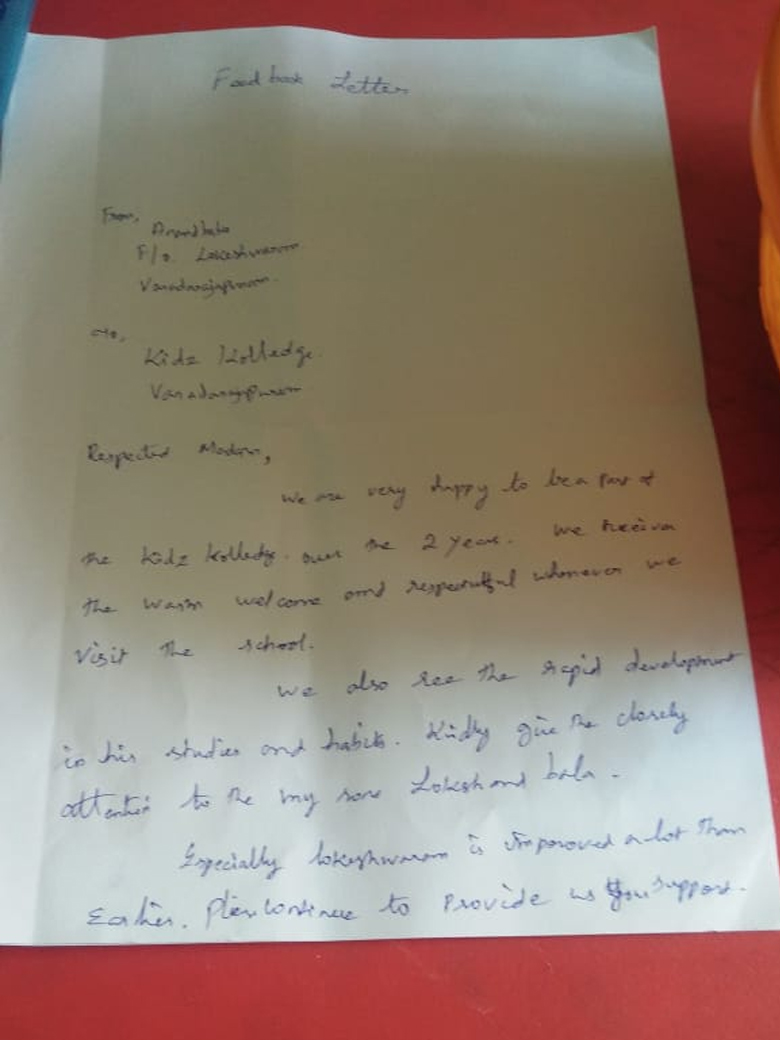 Feedback Letter
From,
Anandbabu
F/o. Lokeshwaran
Varadarajapuram.
To,
Kidz Kolledge.
Varadarajapuram
Respected Madam,
We are very happy to be a part of
the Kidz Kolledge. over the 2 year. We receive
the warm welcome and respectful whenever we
visit the school.
We also see the rapid development
in his studies and habits. Kindly give the closely
attention to the my sons Lokesh and bala.
Especially lokeshwaran is improved a lot than
Earlier. continue to provide us your support.